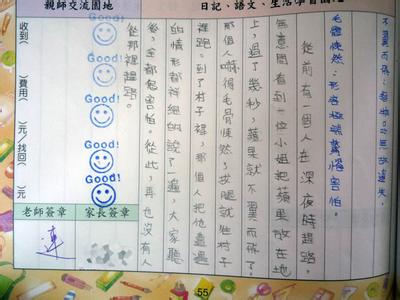 日記、語文、生活學習園
不翼而飛：無故遺失。
毛骨悚然：形容極端驚惶害怕。
從前有一個人在深夜時趕路。
無意間看到一位小姐把蘋果放在地
上，過了幾秒，蘋果就不翼而飛了！
那個人嚇得毛骨悚然，拔腿就往村子
裡跑。到了村子裡，那個人把他遭遇
的情形都詳細的說了一遍，大家聽
後，全都很害怕。從此，再也沒有人
從那裡趕路。
親師交流園地
Good!
Good!
Good!
Good!
Good!
收到( )費用( )元/找回( )元
老師簽章
家長簽章
連
55